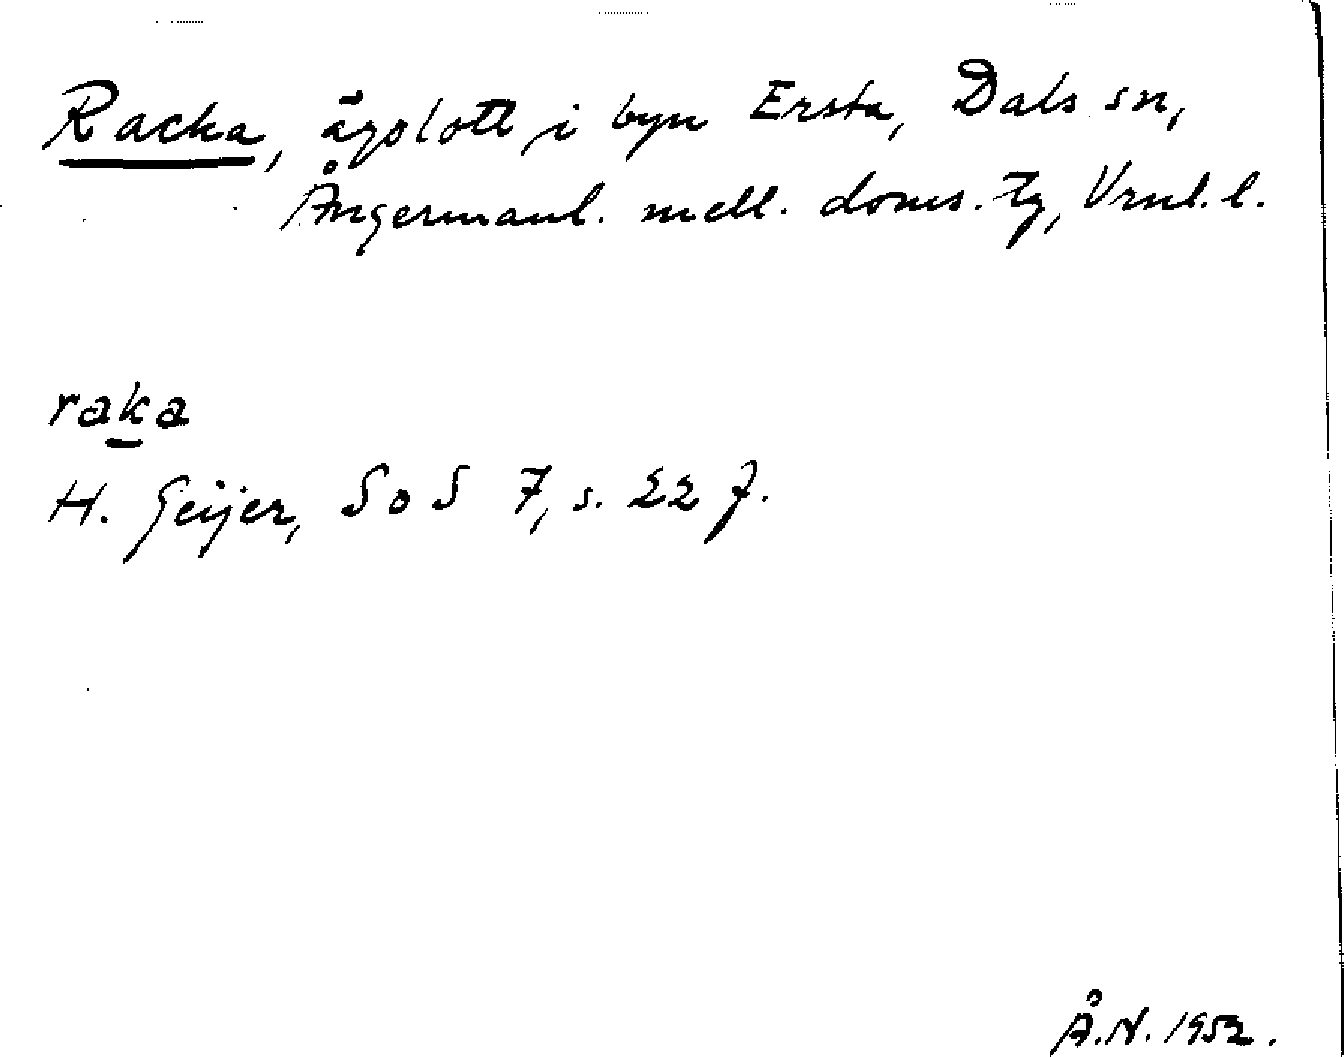 Racka, ägolott i byn Ersta, Dals sn,
Ångermanl. mell. doms. tg, Vrnl. l.
raka
H. Geijer, SoS 7, s. 22 f.
Å.N. 1952.